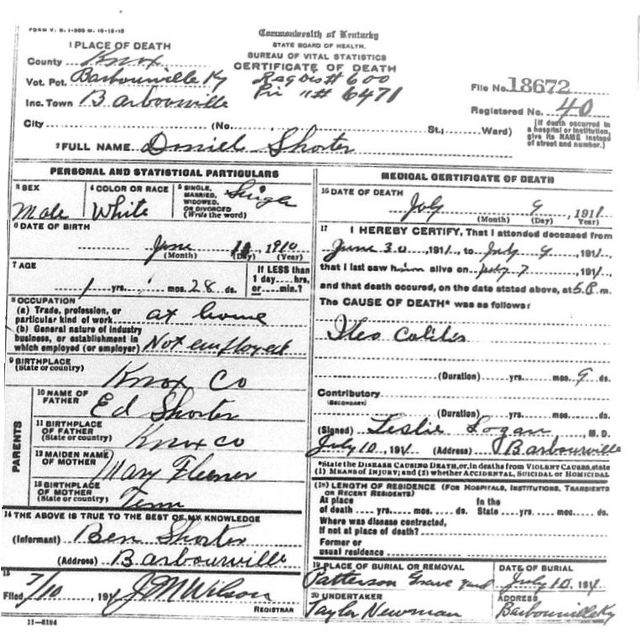 FORM V. S. 1-500 M. 10-18-10
Commonwealth of Kentucky
STATE BOARD OF HEALTH.
BUREAU OF VITAL STATISTICS
CERTIFICATE OF DEATH
1 PLACE OF DEATH
County Knox
Vot. Pct. Barbourville Ky
Inc. Town Barbourville
Reg Dis # 600
Pri " # 6471
File No. 18672
Registered No. 40
City (No. St.; Ward)
(If death occurred in a hospital or institution, give its NAME instead of street and number.)
2 FULL NAME Daniel Shorter
PERSONAL AND STATISTICAL PARTICULARS
3 SEX
Male
4 COLOR OR RACE
White
5 SINGLE, MARRIED, WIDOWED, OR DIVORCED (Write the word)
Single
6 DATE OF BIRTH
June 1910
(Month) (Day) (Year)
7 AGE
1 yrs. mos. 28 ds.
If LESS than 1 day....hrs. or....min.?
8 OCCUPATION
(a) Trade, profession, or particular kind of work at home
(b) General nature of industry business, or establishment in which employed (or employer) Not employed
9 BIRTHPLACE
(State or country)
Knox Co
PARENTS
10 NAME OF FATHER
Ed Shorter
11 BIRTHPLACE OF FATHER (State or country)
Knox co
12 MAIDEN NAME OF MOTHER
Mary
13 BIRTHPLACE OF MOTHER (State or country)
Tenn
14 THE ABOVE IS TRUE TO THE BEST OF MY KNOWLEDGE
(Informant) Ben Shorter
(Address) Barbourville
15
Filed 7/10, 191 J M Wilson
REGISTRAR
11-5184
MEDICAL CERTIFICATE OF DEATH
16 DATE OF DEATH
July 9, 1911
(Month) (Day) (Year)
17 I HEREBY CERTIFY, That I attended deceased from
June 30, 1911, to July 9, 1911,
that I last saw him alive on July 7, 1911,
and that death occured, on the date stated above, at 5 P. m.
The CAUSE OF DEATH* was as follows:
Ileo Colitis
(Duration) yrs. mos. 9 ds.
Contributory
(SECONDARY)
(Duration) yrs. mos. ds.
(Signed) Leslie Logan, M. D.
July 10, 1911 (Address) Barbourville
*State the DISEASE CAUSING DEATH, or, in deaths from VIOLENT CAUSES, state
(1) MEANS OF INJURY; and (2) whether ACCIDENTAL, SUICIDAL or HOMICIDAL
18 LENGTH OF RESIDENCE (FOR HOSPITALS, INSTITUTIONS, TRANSIENTS OR RECENT RESIDENTS)
At place of death yrs. mos. ds. In the State yrs. mos. ds.
Where was disease contracted,
if not at place of death?
Former or
usual residence
19 PLACE OF BURIAL OR REMOVAL
Patterson Grave yard
DATE OF BURIAL
July 10, 1911
20 UNDERTAKER
Taylor Newman
ADDRESS
Barbourville Ky